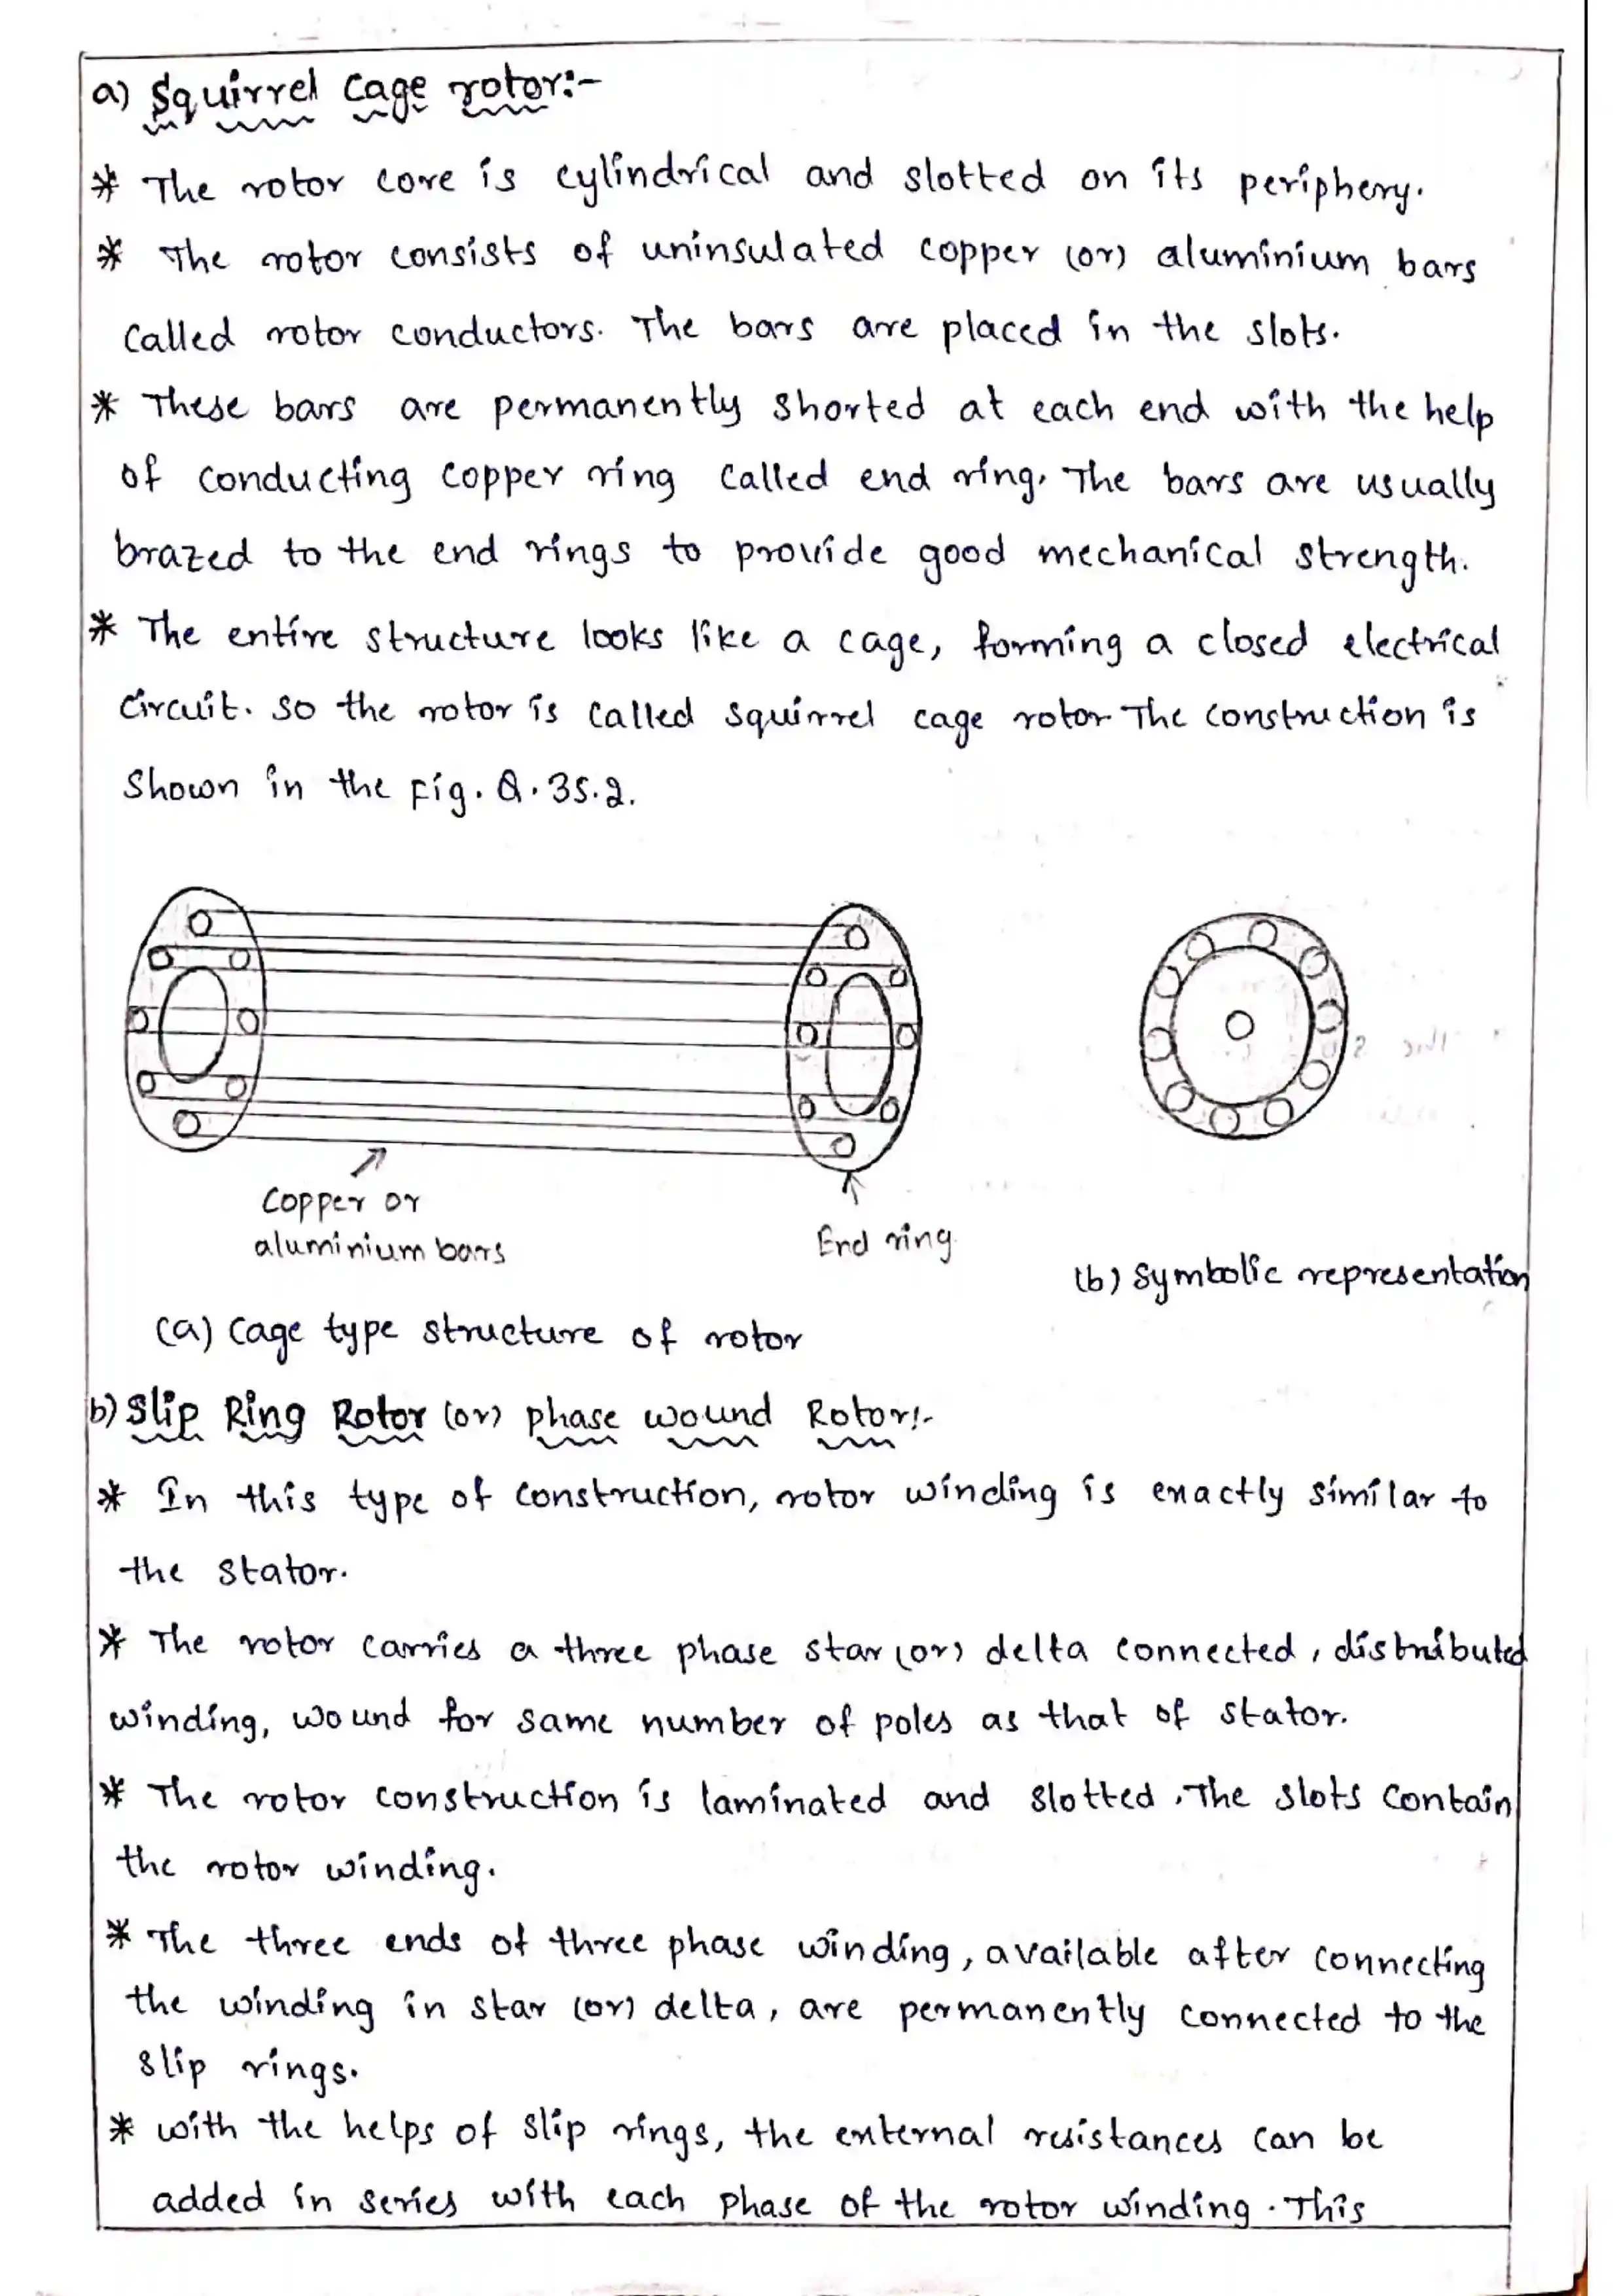 a) Squirrel Cage rotor:-
* The rotor core is cylindrical and slotted on its periphery.
* The rotor consists of uninsulated copper (or) aluminium bars
called rotor conductors. The bars are placed in the slots.
* These bars are permanently shorted at each end with the help
of conducting copper ring called end ring. The bars are usually
brazed to the end rings to provide good mechanical strength.
* The entire structure looks like a cage, forming a closed electrical
circuit. So the rotor is called squirrel cage rotor The construction is
shown in the Fig. Q. 35.2.
Copper or
aluminium bars
End ring
(b) Symbolic representation
(a) Cage type structure of rotor
b) Slip Ring Rotor (or) phase wound Rotor:-
* In this type of construction, rotor winding is exactly similar to
the stator.
* The rotor carries a three phase star (or) delta connected, distributed
winding, wound for same number of poles as that of stator.
* The rotor construction is laminated and slotted. The slots contain
the rotor winding.
* The three ends of three phase winding, available after connecting
the winding in star (or) delta, are permanently connected to the
slip rings.
* with the helps of slip rings, the external resistances can be
added in series with each phase of the rotor winding. This